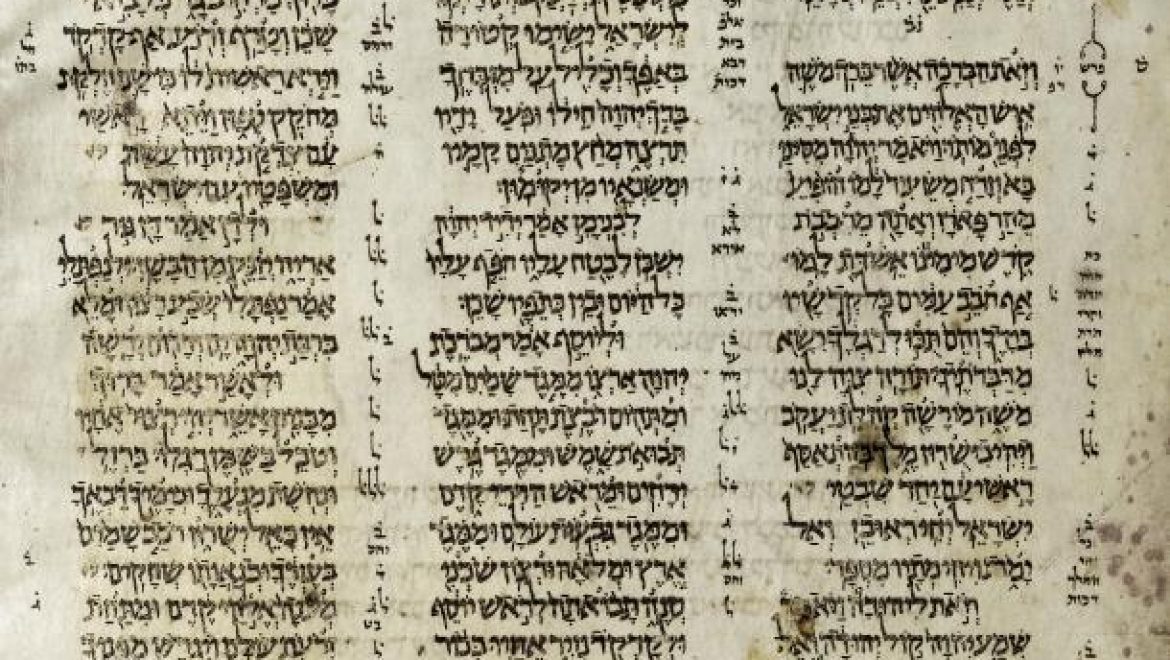 וזאת הברכה אשר ברך משה
איש האלהים את בני ישראל
לפני מותו ויאמר יהוה מסיני
בא וזרח משעיר למו הופיע
מהר פארן ואתה מרבבת
קדש מימינו אשדת למו
אף חבב עמים כל קדשיו
בידך והם תכו לרגלך ישא
מדברתיך תורה צוה לנו
משה מורשה קהלת יעקב
ויהי בישרון מלך בהתאסף
ראשי עם יחד שבטי
ישראל יחי ראובן ואל
ימת ויהי מתיו מספר
וזאת ליהודה ויאמר
שמע יהוה קול יהודה ואל
לישראל ישימו קטורה
באפך וכליל על מזבחך
ברך יהוה חילו ופעל ידיו
תרצה מחץ מתנים קמיו
ומשנאיו מן יקומון
לבנימן אמר ידיד יהוה
ישכן לבטח עליו חפף עליו
כל היום ובין כתפיו שכן
וליוסף אמר מברכת
יהוה ארצו ממגד שמים מטל
ומתהום רבצת תחת וממגד
תבואת שמש וממגד גרש
ירחים ומראש הררי קדם
וממגד גבעות עולם וממגד
ארץ ומלאה ורצון שכני
סנה תבואתה לראש יוסף
ולקדקד נזיר אחיו בכור
שכן וטרף זרוע אף קדקד
וירא ראשית לו כי שם חלקת
מחקק ספון ויתא ראשי
עם צדקת יהוה עשה
ומשפטיו עם ישראל
ולדן אמר דן גור
אריה יזנק מן הבשן ולנפתלי
אמר נפתלי שבע רצון ומלא
ברכת יהוה ים ודרום ירשה
ולאשר אמר ברוך
מבנים אשר יהי רצוי אחיו
וטבל בשמן רגלו ברזל
ונחשת מנעליך וכימיך דבאך
אין כאל ישרון רכב שמים
בעזרך ובגאותו שחקים
מענה אלהי קדם ומתחת
זרעת עולם ויגרש